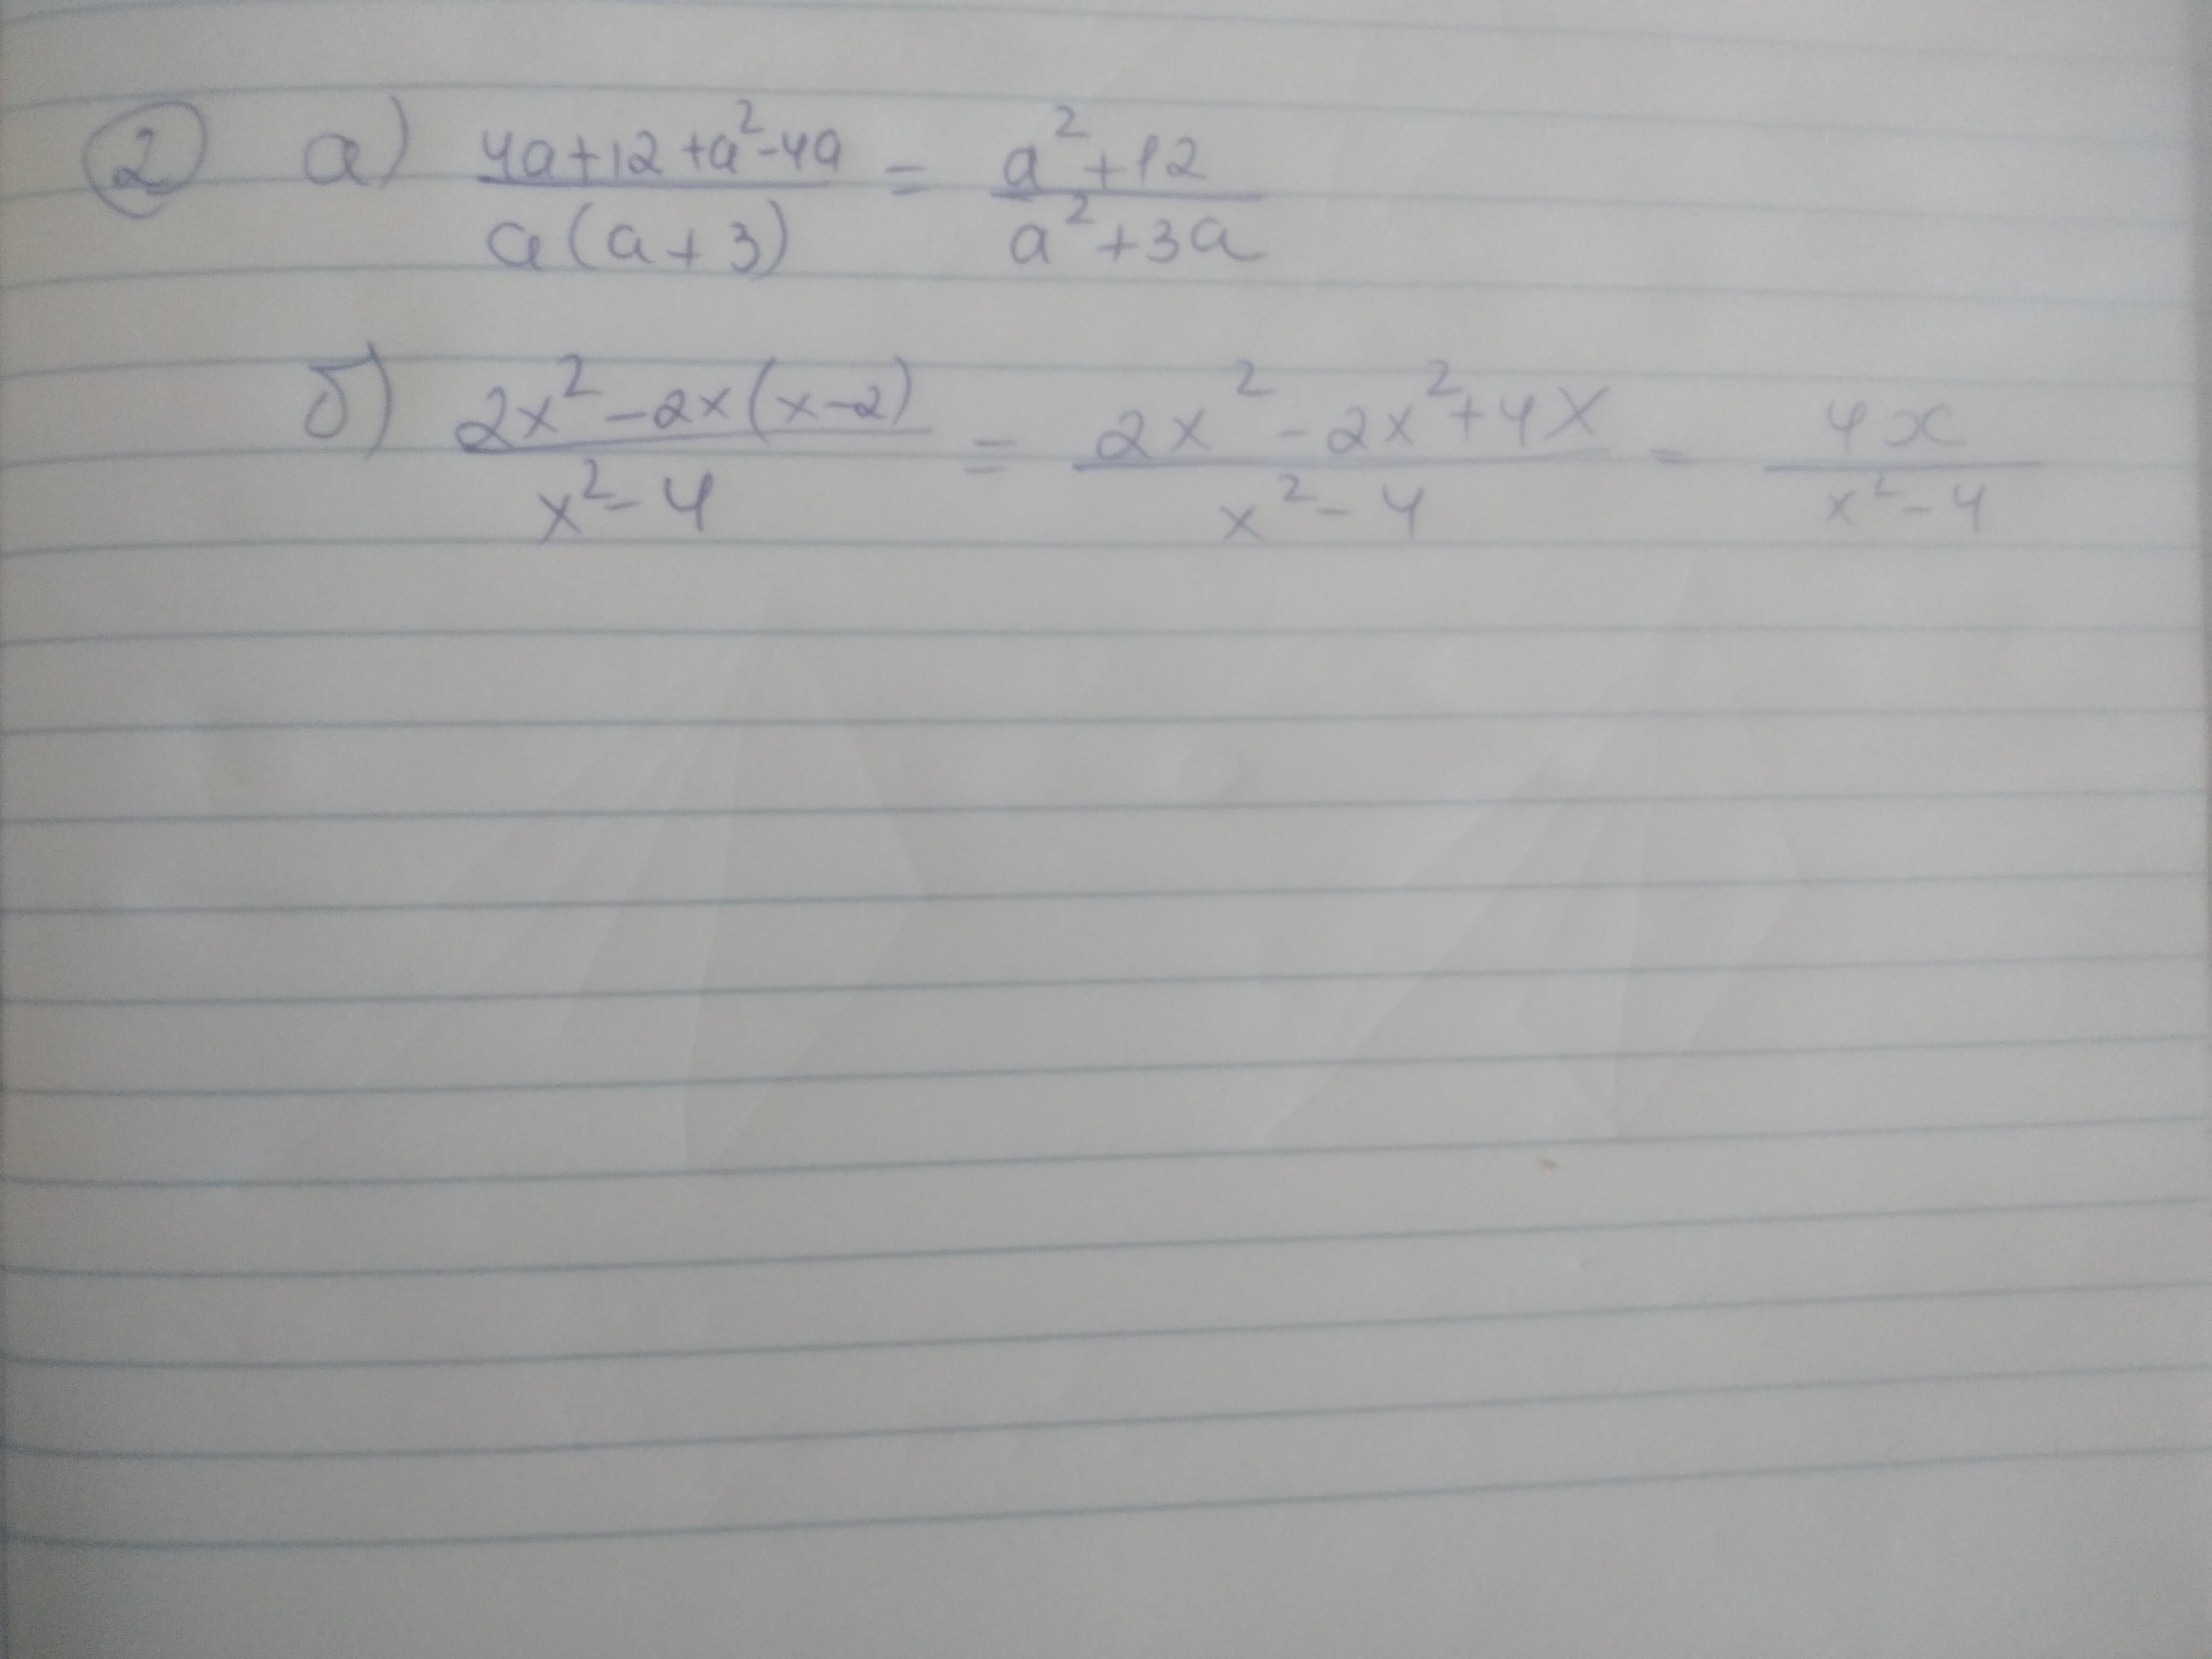 ② а) (4a+12+a²-4a)/(a(a+3)) = (a²+12)/(a²+3a)
б) (2x²-2x(x-2))/(x²-4) = (2x²-2x²+4x)/(x²-4) = 4x/(x²-4)